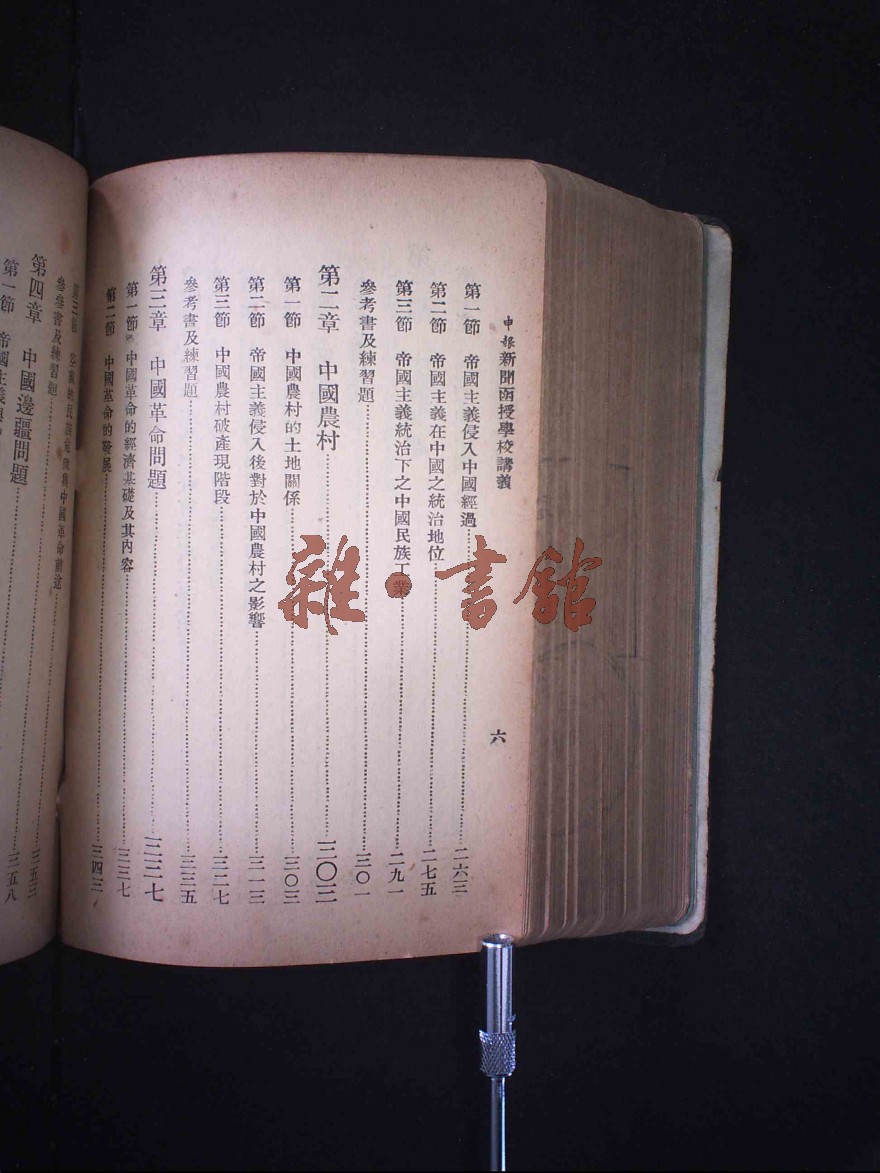 申報新聞函授學校講義
六
第一節 帝國主義侵入中國經過……二六三
第二節 帝國主義在中國之統治地位……二七五
第三節 帝國主義統治下之中國民族工業……二九一
參考書及練習題……三〇一
第二章 中國農村……三〇三
第一節 中國農村的土地關係……三〇三
第二節 帝國主義侵入後對於中國農村之影響……三一三
第三節 中國農村破產現階段……三二七
參考書及練習題……三三五
第三章 中國革命問題……三三七
第一節 中國革命的經濟基礎及其內容……三三七
第二節 中國革命的發展……三四三
中國革命前途
參考書及練習題……三五三
第四章 中國邊疆問題……
第一節 帝國主義與……三五八
雜·書館